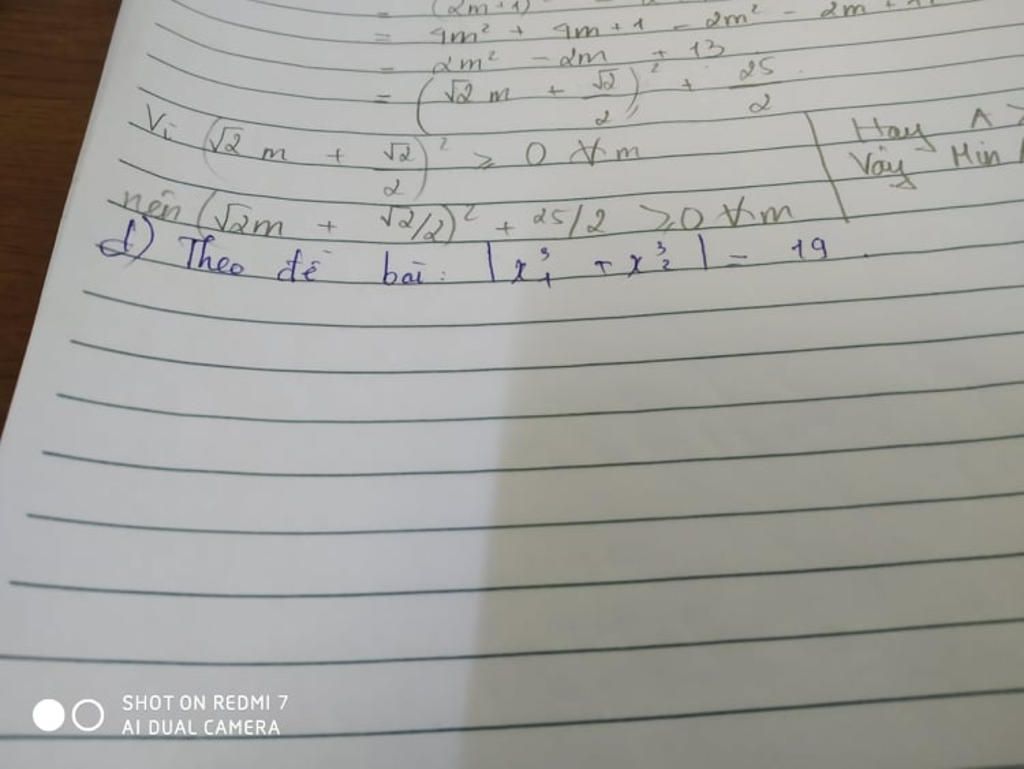 (2m+1)
= 4m² + 4m + 1 - 2m² - 2m +
= 2m² - 2m + 13
= (√2 m + √2/2)² + 25/2
Vì (√2 m + √2/2)² ≥ 0 ∀m
Hay A ≥
Vậy Min
nên (√2m + √2/2)² + 25/2 ≥0 ∀m
d) Theo đề bài: |x₁³ + x₂³| = 19
SHOT ON REDMI 7
AI DUAL CAMERA